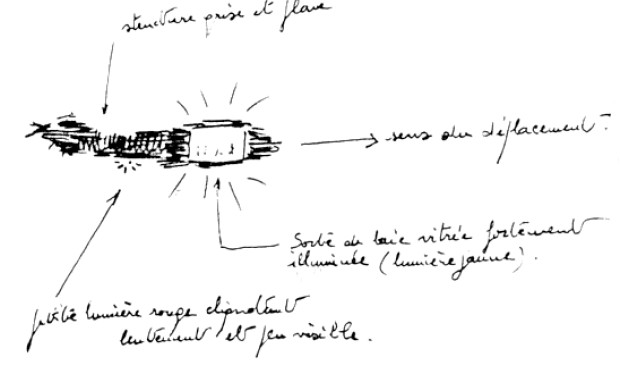 structure grise et floue
sens du déplacement.
Sorte de baie vitrée fortement
illuminée (lumière jaune).
petite lumière rouge clignotant
lentement et peu visible.